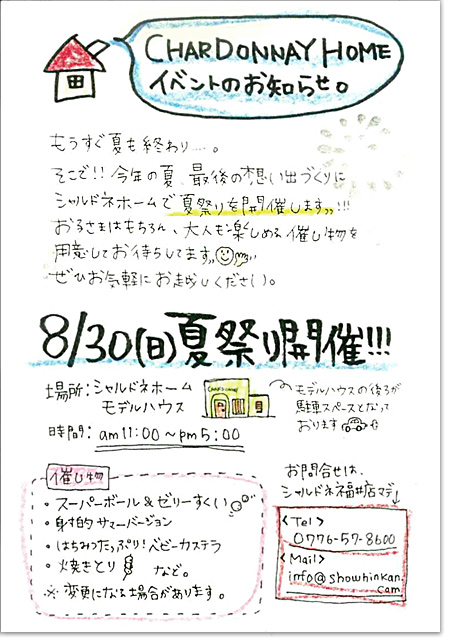 CHARDONNAY HOME
イベントのお知らせ。
もうすぐ夏も終わり……。
そこで!!今年の夏、最後の想い出づくりに
シャルドネホームで夏祭りを開催します,,!!!
お子さまはもちろん、大人も楽しめる催し物を
用意してお待ちしてます,,
ぜひお気軽にお越しください。
8/30(日)夏祭り開催!!!
場所:シャルドネホーム
モデルハウス
CHARDONNAY
モデルハウスの後ろが
駐車スペースとなって
おります
時間:am11:00~pm5:00
催し物
・スーパーボール&ゼリーすくい
・射的サマーバージョン
・はちみつたっぷり!ベビーカステラ
・火焼きとり など。
※変更になる場合があります。
お問合せは、
シャルドネ福井店マデ
<Tel>
0776-57-8600
<Mail>
info@showhinkan.
com